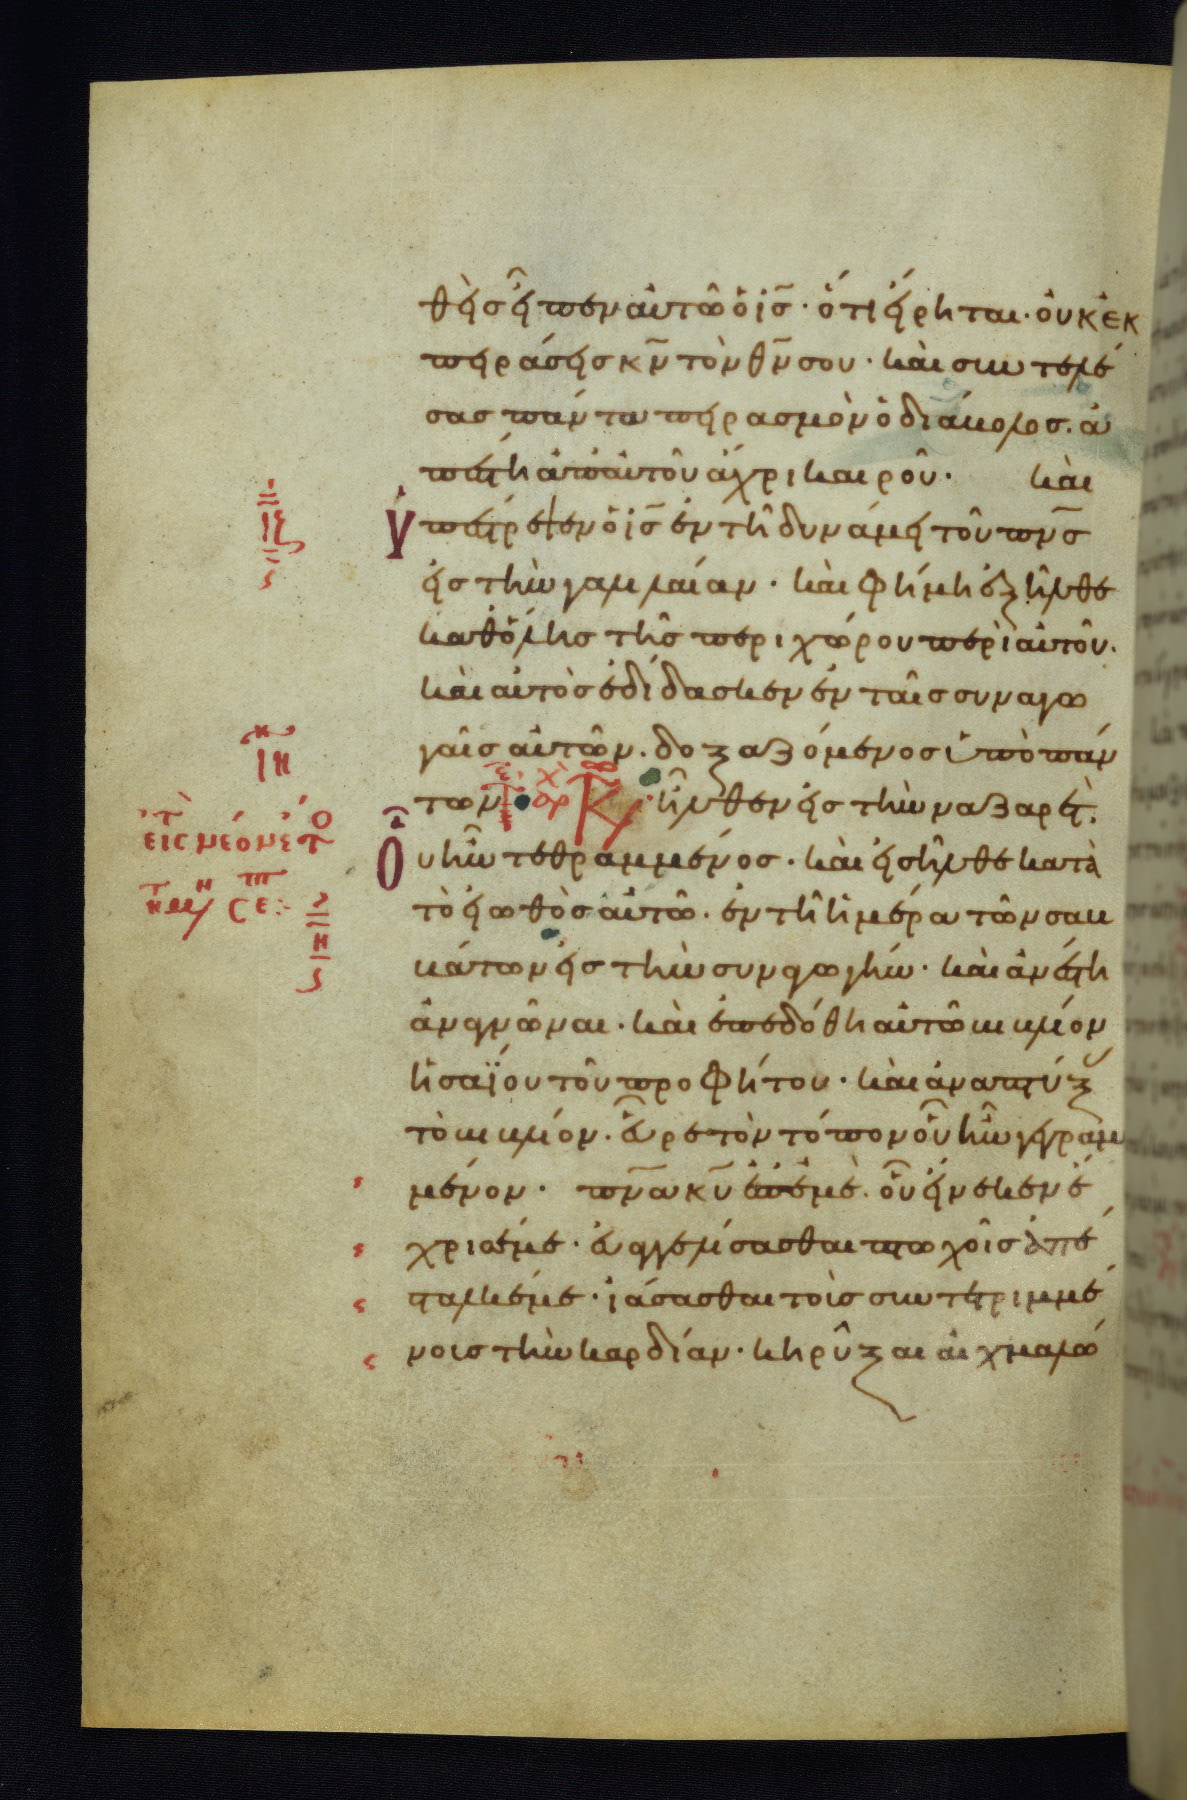 θεὶς εἶπεν αὐτῶ ὁ ις̄· ὅτι εἴρηται· οὐκ ἐκ
πειράσεις κν̄ τὸν θν̄ σου· καὶ συντελέ
σας πάντα πειρασμὸν ὁ διάβολος. ἀ
πέστη ἀπ' αὐτοῦ ἄχρι καιροῦ· καὶ
ὑπέστρεψεν ὁ ις̄ ἐν τῆ δυνάμει τοῦ πνς̄
εἰς τὴν γαλιλαίαν· καὶ φήμη ἐξῆλθε
καθ' ὅλης τῆς περιχώρου περὶ αὐτοῦ.
καὶ αὐτὸς ἐδίδασκεν ἐν ταῖς συναγω
γαῖς αὐτῶν. δοξαζόμενος ὑπὸ πάν
των καὶ ἦλθεν εἰς τὴν ναζαρέτ.
οὗ ἦν τεθραμμένος· καὶ εἰσῆλθε κατὰ
τὸ εἰωθὸς αὐτῶ. ἐν τῆ ἡμέρα τῶν σαβ
βάτων εἰς τὴν συναγωγήν· καὶ ἀνέστη
ἀναγνῶναι· καὶ ἐπεδόθη αὐτῶ βιβλίον
ἡσαΐου τοῦ προφήτου· καὶ ἀναπτύξας
τὸ βιβλίον. εὗρε τὸν τόπον οὗ ἦν γεγραμ
μένον· πνᾱ κῡ ἐπ' ἐμέ. οὗ εἵνεκεν ἔ
χρισέ με· εὐαγγελίσασθαι πτωχοῖς ἀπέ
σταλκέ με· ἰάσασθαι τοὺς συντετριμμέ
νους τὴν καρδίαν· κηρῦξαι αἰχμαλώ